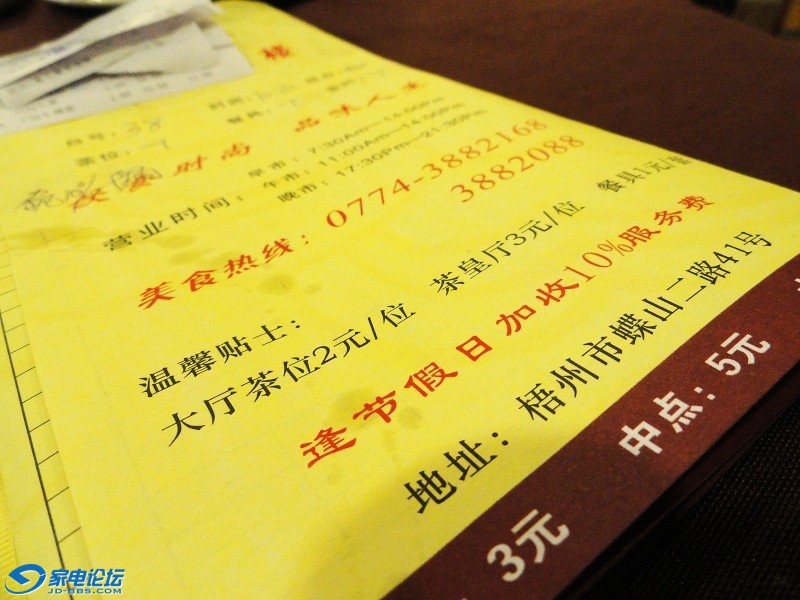 楼
台号：38
茶位：7
时尚 品味人生
早市：7:30Am—14:00Pm
营业时间：午市：11:00Am—14:00Pm
晚市：17:30Pm—21:30Pm
美食热线：0774-3882168
3882088
温馨贴士：
大厅茶位2元/位 茶皇厅3元/位 餐具1元/
逢节假日加收10%服务费
地址：梧州市蝶山二路41号
3元 中点：5元
家电论坛
JD-BBS.COM